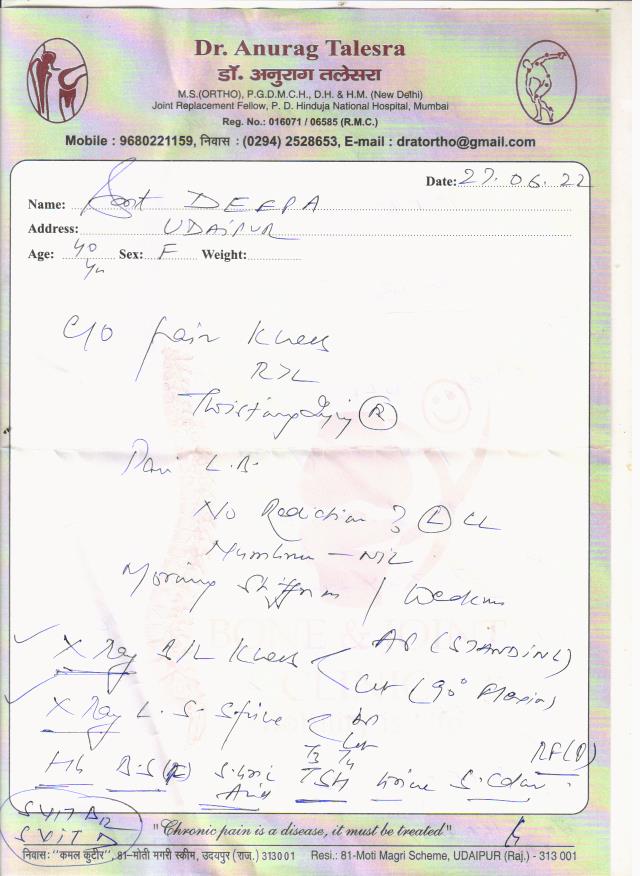 Dr. Anurag Talesra
डॉ. अनुराग तलेसरा
M.S.(ORTHO), P.G.D.M.C.H., D.H. & H.M. (New Delhi)
Joint Replacement Fellow, P. D. Hinduja National Hospital, Mumbai
Reg. No.: 016071 / 06585 (R.M.C.)
Mobile : 9680221159, निवास : (0294) 2528653, E-mail : dratortho@gmail.com
Date: 27.06.22
Name: DEEPA
Address: UDAIPUR
Age: 40 Sex: F Weight:
C/O pain Knees
R>L
Twisting Injury R
Pain L.B.
No Radiation ? L LL
Numbness - NIL
Morning Stiffness / Weakness
X Ray B/L Knees AP (STANDING)
Lat (90° Flexion)
X Ray L.S. Spine AP
Lat
T3 T4 RF(Q)
Hb B.S(F) S.Uric Acid TSH Urine S.
S VIT B12
S VIT D
BONE & JOINT
"Chronic pain is a disease, it must be treated"
निवास: "कमल कुटीर", 81-मोती मगरी स्कीम, उदयपुर (राज.) 313001 Resi.: 81-Moti Magri Scheme, UDAIPUR (Raj.) - 313 001